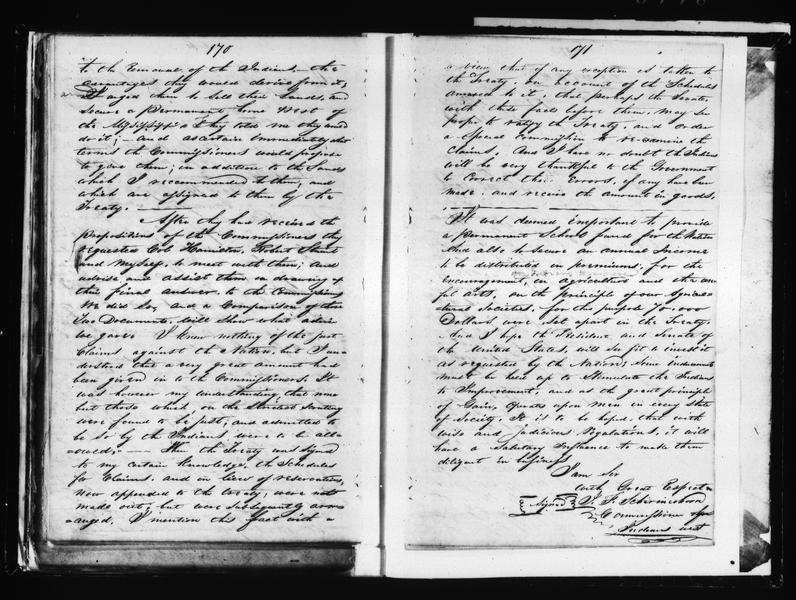 170
to the removal of the Indians,- the
advantages they would derive from it;
I urged them to sell their lands, and
secure a permanent home West of
the Mississippi. They told me they would
do it; - and ascertain immediately what
terms the Commissioners would propose
to give them; in addition to the Lands
which I reccommended to them; and
which are assigned to them by the
Treaty. -
After they has received the
propositions of the Commissioners they
requested Col. Hamilton, Robert Stuart
and myself, to meet with them; and
advise and assist them in drawing up
their final answer, to the Commissioners
We did so, and a Comparison of these
two Documents, will show what advice
we gave. I knew nothing of the just
Claims against the Nation, but I un=
derstood that a very great amount had
been given in to the Commissioners. It
was however my understanding that none
but those which, on the strictest scrutiny
were found to be just, and admitted to
be so by the Indians were to be all=
=owed; - When the Treaty was signed
to my certain knowledge, the Schedules
for Claims, and in lieu of reservations,
now appended to the treaty, were not
made out, but were subsequently arr=
=anged. I mention this fact with a
171
a view, that if any exception is taken to
the Treaty, on account of the Schedules
annexed to it, that perhaps the Senate,
with these facts before them, may see
proper to ratify the Treaty, and order
a Special Commission to re-examine the
Claims, And I have no doubt the Indians
will be very thankful to the Government
to correct their errors, if any have been
made, and receive the amount in goods,
It was deemed important to provide
a permanent School fund for the Nation
And also to secure an annual Income
to be distributed in premiums, for the
encouragement, in agriculture and the use=
ful arts, on the principle of our Agricul=
tural Societies, for this purpose 70,000
Dollars were set apart in the Treaty.
And I hope the President and Senate of
the United States, will see fit to invest it
as requested by the Nation; Some inducements
must be held up to Stimulate the Indians
to Improvement, and as the great principle
of Gain, operates upon men in every State
of Society. It is to be hoped, that with
wise and judicious Regulations, it will
have a Salutary Influence to make them
diligent in business.
I am Sir
with Great Respect
Signed J. F. Schermerhorn
Commissioner
Indians west